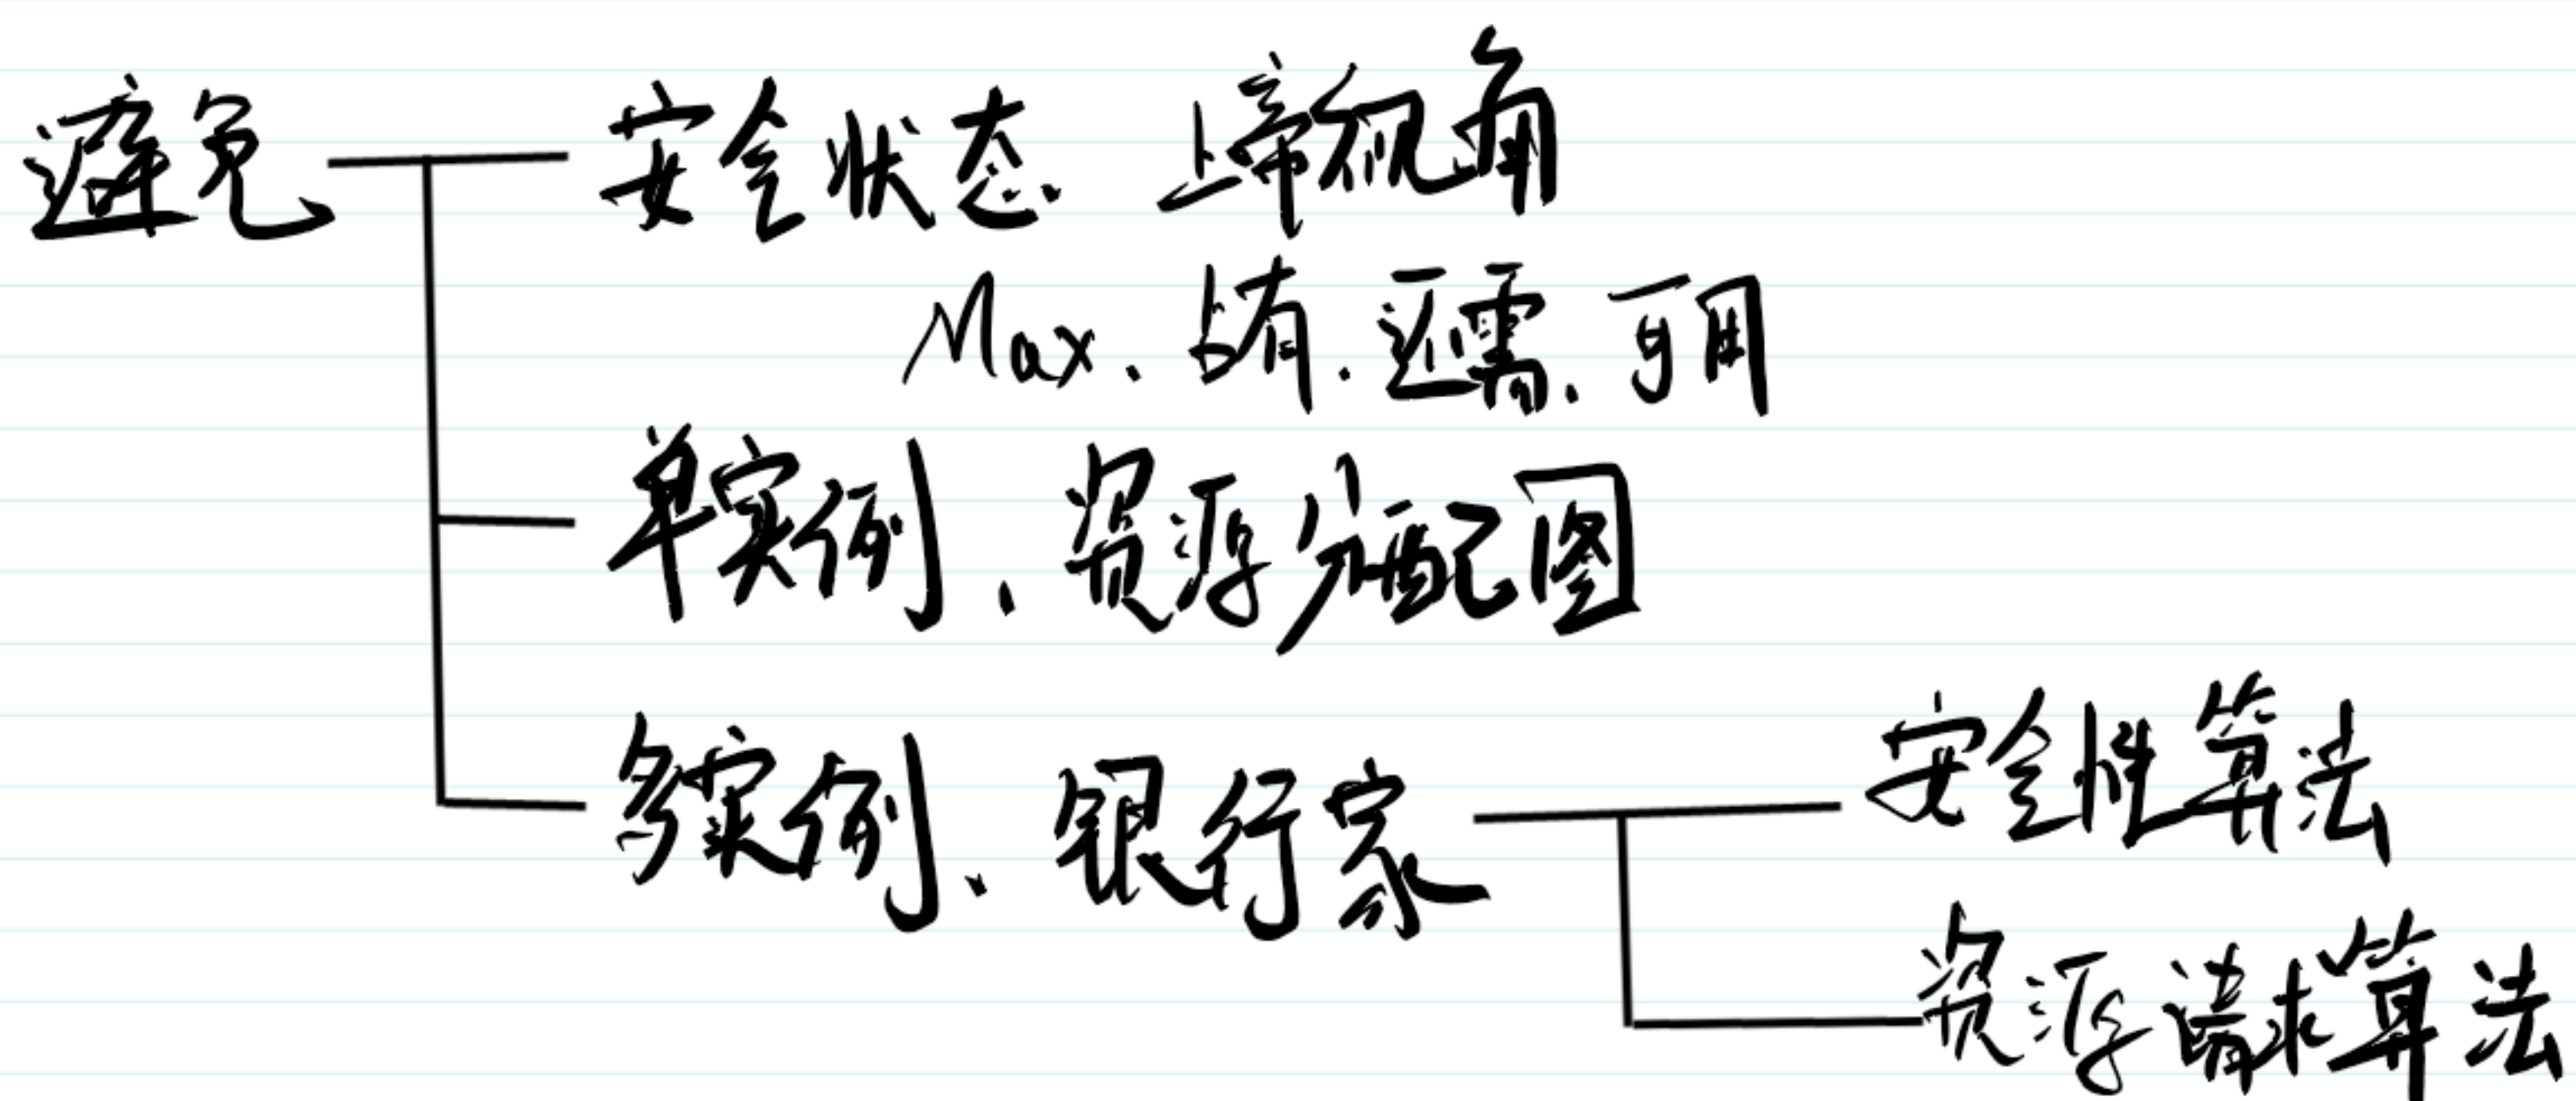 避免 安全状态. 上帝视角
Max. 占有. 还需. 可用
单实例、资源分配图
多实例、银行家 安全性算法
资源请求算法